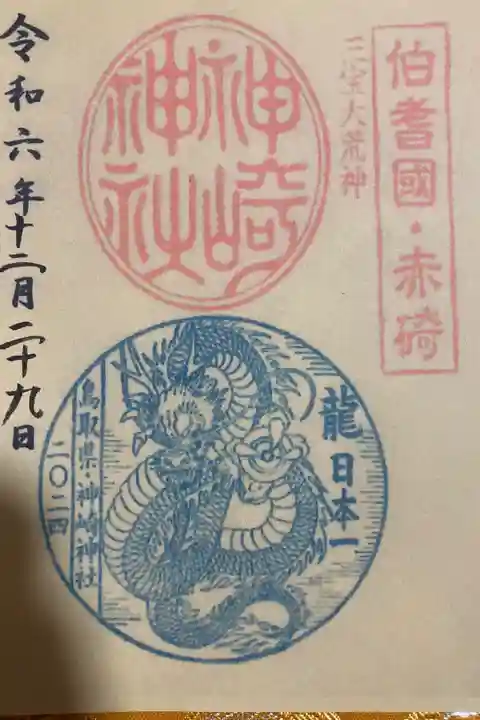 伯耆國・赤碕
三宝大荒神
神崎
神社
令和六年十二月二十九日
龍日本一
鳥取県・神崎神社
二〇二四